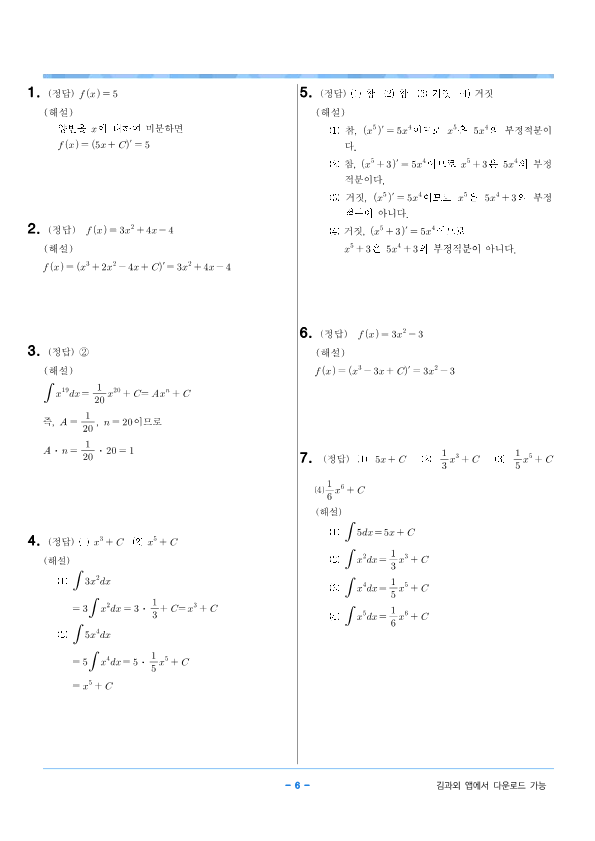 1. (정답) f(x) = 5
(해설)
양변을 x에 대하여 미분하면
f(x) = (5x + C)′ = 5
2. (정답) f(x) = 3x² + 4x − 4
(해설)
f(x) = (x³ + 2x² − 4x + C)′ = 3x² + 4x − 4
3. (정답) ②
(해설)
∫ x¹⁹dx = 1/20 x²⁰ + C = Axⁿ + C
즉, A = 1/20, n = 20이므로
A · n = 1/20 · 20 = 1
4. (정답) (1) x³ + C (2) x⁵ + C
(해설)
(1) ∫ 3x²dx
= 3∫ x²dx = 3 · 1/3 + C = x³ + C
(2) ∫ 5x⁴dx
= 5∫ x⁴dx = 5 · 1/5 x⁵ + C
= x⁵ + C
5. (정답) (1) 참 (2) 참 (3) 거짓 (4) 거짓
(해설)
(1) 참, (x⁵)′ = 5x⁴이므로 x⁵은 5x⁴의 부정적분이
다.
(2) 참, (x⁵ + 3)′ = 5x⁴이므로 x⁵ + 3은 5x⁴의 부정
적분이다.
(3) 거짓, (x⁵)′ = 5x⁴이므로 x⁵은 5x⁴ + 3의 부정
적분이 아니다.
(4) 거짓, (x⁵ + 3)′ = 5x⁴이므로
x⁵ + 3은 5x⁴ + 3의 부정적분이 아니다.
6. (정답) f(x) = 3x² − 3
(해설)
f(x) = (x³ − 3x + C)′ = 3x² − 3
7. (정답) (1) 5x + C (2) 1/3 x³ + C (3) 1/5 x⁵ + C
(4) 1/6 x⁶ + C
(해설)
(1) ∫ 5dx = 5x + C
(2) ∫ x²dx = 1/3 x³ + C
(3) ∫ x⁴dx = 1/5 x⁵ + C
(4) ∫ x⁵dx = 1/6 x⁶ + C
− 6 −
김과외 앱에서 다운로드 가능